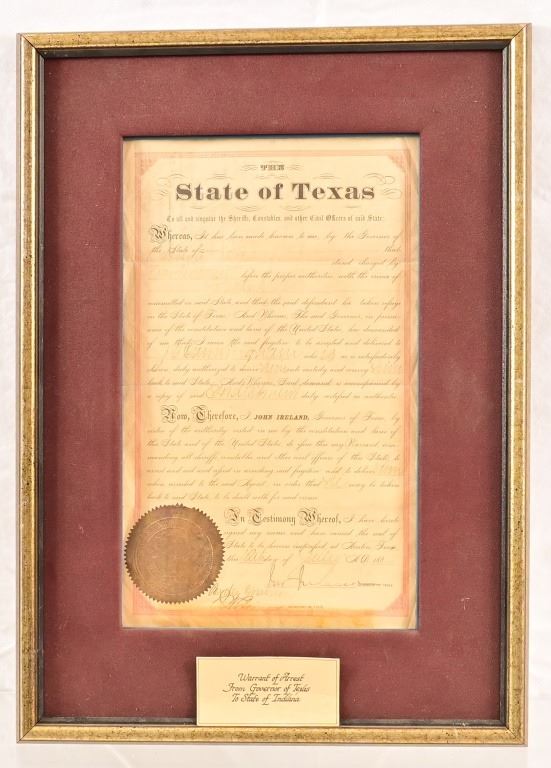 THE
State of Texas
To all and singular the Sheriffs, Constables, and other Civil Officers of said State:
Whereas, It has been made known to me, by the Governor of
the State of that
stand charged by
before the proper authorities with the crime of
committed in said State, and that the said defendant has taken refuge
in the State of Texas. And Whereas, The said Governor, in pursu-
ance of the constitution and laws of the United States, has demanded
of me that I cause the said fugitive to be arrested and delivered to
who is as is satisfactorily
shown, duly authorized to receive into custody and convey
back to said State. And Whereas, Said demand is accompanied by
a copy of said duly certified as authentic.
Now, Therefore, I JOHN IRELAND, Governor of Texas, by
virtue of the authority vested in me by the constitution and laws of
this State and of the United States, do issue this my Warrant com-
manding all sheriffs, constables and other civil officers of this State, to
arrest and aid and assist in arresting said fugitive and to deliver
when arrested to the said Agent, in order that may be taken
back to said State, to be dealt with for said crime.
In Testimony Whereof, I have hereto
signed my name and have caused the seal of
State to be hereon impressed at Austin, Texas
this day of A.D. 188
Warrant of Arrest
From Governor of Texas
To State of Indiana